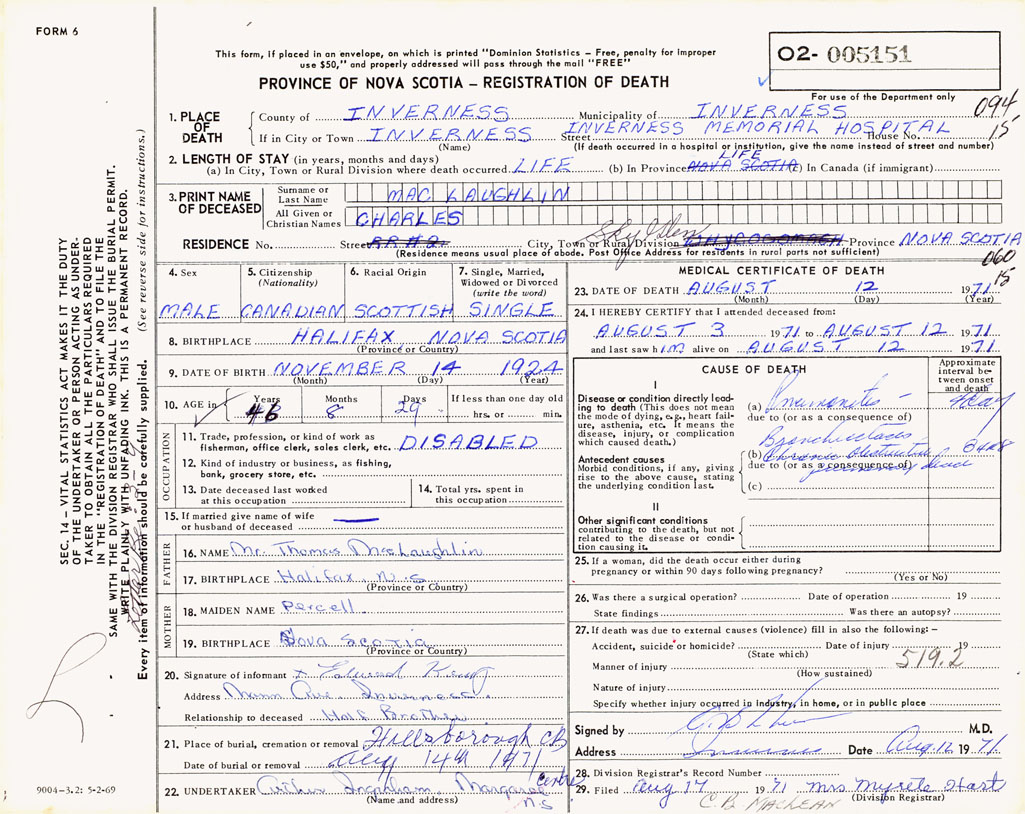 FORM 6
This form, if placed in an envelope, on which is printed "Dominion Statistics – Free, penalty for improper
use $50," and properly addressed will pass through the mail "FREE"
02- 005151
PROVINCE OF NOVA SCOTIA – REGISTRATION OF DEATH
For use of the Department only
094
15
1. PLACE OF DEATH
County of INVERNESS Municipality of INVERNESS
If in City or Town INVERNESS Street INVERNESS MEMORIAL HOSPITAL House No.
(Name) (If death occurred in a hospital or institution, give the name instead of street and number)
2. LENGTH OF STAY (in years, months and days)
(a) In City, Town or Rural Division where death occurred LIFE (b) In Province NOVA SCOTIA LIFE In Canada (if immigrant)
3. PRINT NAME OF DECEASED
Surname or Last Name MAC LAUGHLIN
All Given or Christian Names CHARLES
RESIDENCE No. Street RR#2 City, Town or Rural Division WHYCOCOMAGH Sky Glen Province NOVA SCOTIA
(Residence means usual place of abode. Post Office Address for residents in rural parts not sufficient)
060
15
4. Sex MALE
5. Citizenship (Nationality) CANADIAN
6. Racial Origin SCOTTISH
7. Single, Married, Widowed or Divorced (write the word) SINGLE
8. BIRTHPLACE HALIFAX NOVA SCOTIA
(Province or Country)
9. DATE OF BIRTH NOVEMBER 14 1924
(Month) (Day) (Year)
10. AGE in Years 46 Months 8 Days 29 If less than one day old
hrs. or min.
OCCUPATION
11. Trade, profession, or kind of work as
fisherman, office clerk, sales clerk, etc. DISABLED
12. Kind of industry or business, as fishing,
bank, grocery store, etc.
13. Date deceased last worked
at this occupation
14. Total yrs. spent in
this occupation
15. If married give name of wife
or husband of deceased —
FATHER
16. NAME Mr. Thomas McLaughlin
17. BIRTHPLACE Halifax, N.S
(Province or Country)
MOTHER
18. MAIDEN NAME Percell
19. BIRTHPLACE Nova Scotia
(Province or Country)
20. Signature of informant x Edward King
Address Mann Ave. Inverness.
Relationship to deceased Half Brother
21. Place of burial, cremation or removal Hillsborough CB
Date of burial or removal Aug 14th 1971
22. UNDERTAKER Arthur Ingraham, Margaree Centre N.S
(Name and address)
MEDICAL CERTIFICATE OF DEATH
23. DATE OF DEATH AUGUST 12 1971
(Month) (Day) (Year)
24. I HEREBY CERTIFY that I attended deceased from:
AUGUST 3 1971 to AUGUST 12 1971
and last saw him alive on AUGUST 12 1971
CAUSE OF DEATH
Approximate interval between onset and death
I
Disease or condition directly leading to death (This does not
mean the mode of dying, e.g., heart failure, asthenia, etc. It means the
disease, injury, or complication
which caused death.)
(a) Pneumonitis
due to (or as a consequence of)
Antecedent causes
Morbid conditions, if any, giving
rise to the above cause, stating
the underlying condition last.
Bronchiectasis
(b) Chronic Obstructive
due to (or as a consequence of)
pulmonary
(c)
II
Other significant conditions
contributing to the death, but not
related to the disease or condition causing it.
25. If a woman, did the death occur either during
pregnancy or within 90 days following pregnancy?
(Yes or No)
26. Was there a surgical operation? Date of operation 19
State findings Was there an autopsy?
27. If death was due to external causes (violence) fill in also the following: –
Accident, suicide or homicide? Date of injury 19
(State which)
519.2
Manner of injury
(How sustained)
Nature of injury
Specify whether injury occurred in industry, in home, or in public place
Signed by M.D.
Address Inverness Date Aug 12 1971
28. Division Registrar's Record Number
29. Filed Aug 17 1971 Mrs Myrtle Hart
C.B. MacLEAN (Division Registrar)
SEC. 14 – VITAL STATISTICS ACT MAKES IT THE DUTY
OF THE UNDERTAKER OR PERSON ACTING AS UNDER-
TAKER TO OBTAIN ALL THE PARTICULARS REQUIRED
IN THE "REGISTRATION OF DEATH" AND TO FILE THE
SAME WITH THE DIVISION REGISTRAR WHO SHALL ISSUE THE BURIAL PERMIT.
WRITE PLAINLY WITH UNFADING INK. THIS IS A PERMANENT RECORD.
Every item of information should be carefully supplied. (See reverse side for instructions.)
9004-3.2: 5-2-69